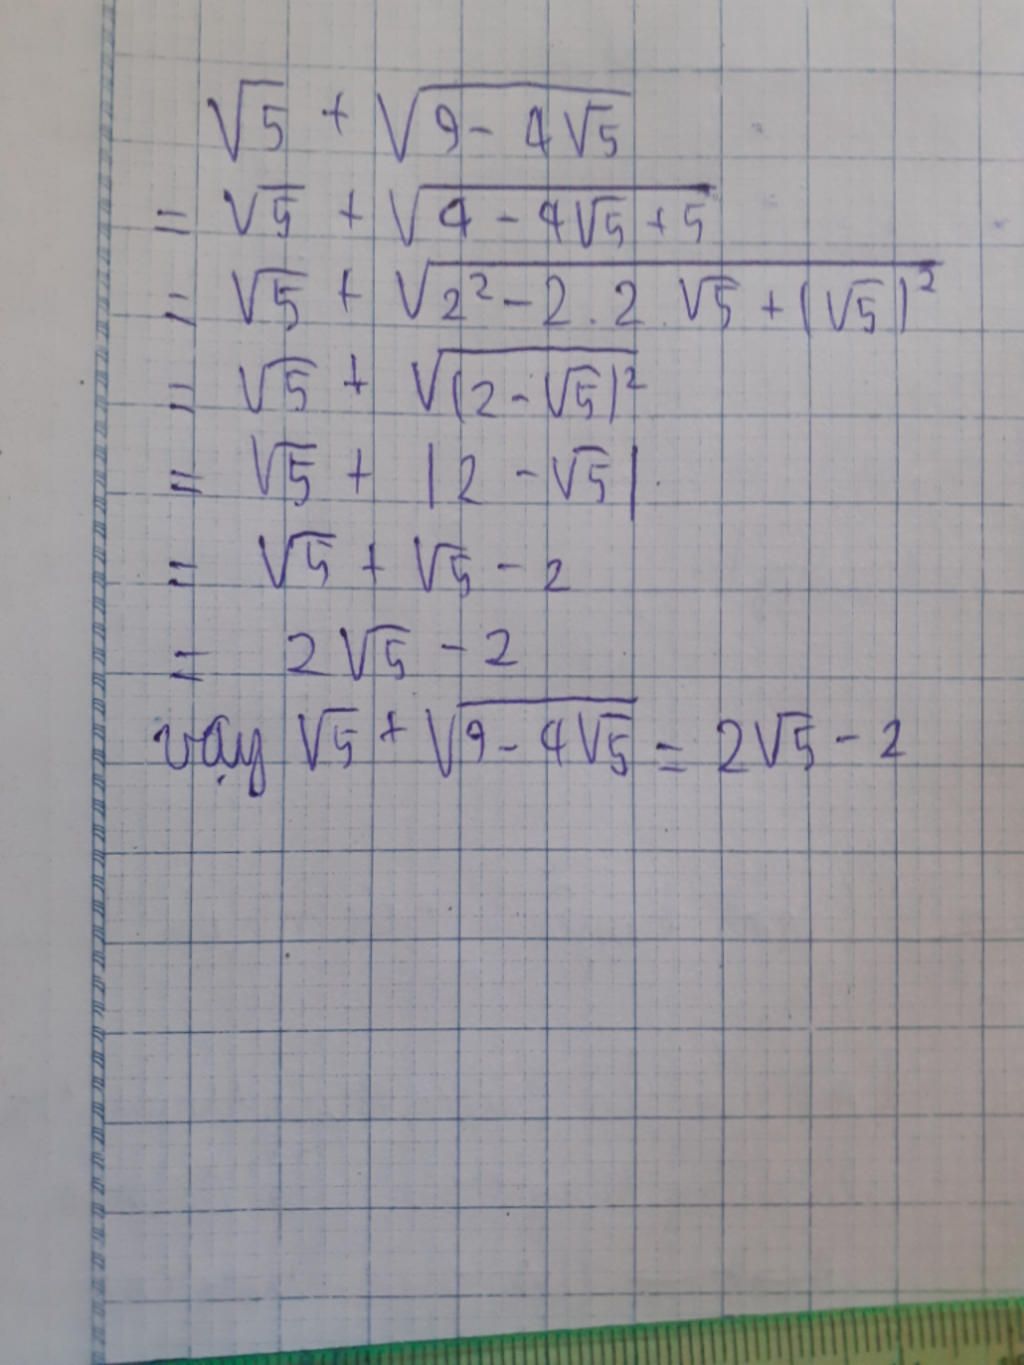 √5 + √(9 - 4√5)
= √5 + √(4 - 4√5 + 5)
= √5 + √(2² - 2.2.√5 + (√5)²)
= √5 + √((2 - √5)²)
= √5 + |2 - √5|.
= √5 + √5 - 2
= 2√5 - 2
vạy √5 + √(9 - 4√5) = 2√5 - 2